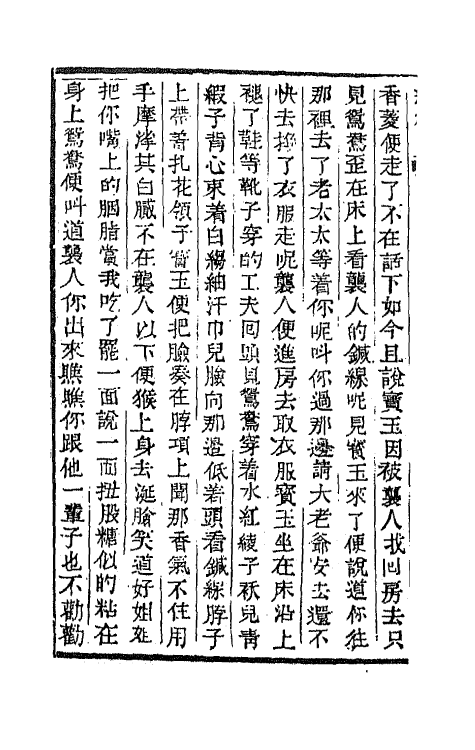 香菱便走了不在話下如今且說寳玉因被襲人找回房去只
見鴛鴦歪在床上看襲人的鍼線呢見寳玉來了便說道你往
那裡去了老太太等着你呢叫你過那邊請大老爺安去還不
快去換了衣服走呢襲人便進房去取衣服寳玉坐在床沿上
褪了鞋等靴子穿的工夫回頭見鴛鴦穿着水紅綾子袄兒靑
縀子背心束着白縐紬汗巾兒臉向那邉低着頭看鍼線脖子
上帶着扎花領子寳玉便把臉奏在脖項上聞那香氣不住用
手摩挲其白膩不在襲人以下便猴上身去涎臉笑道好姐姐
把你嘴上的胭脂賞我吃了罷一面說一面扭股糖似的粘在
身上鴛鴦便叫道襲人你出來瞧瞧你跟他一輩子也不勸勸